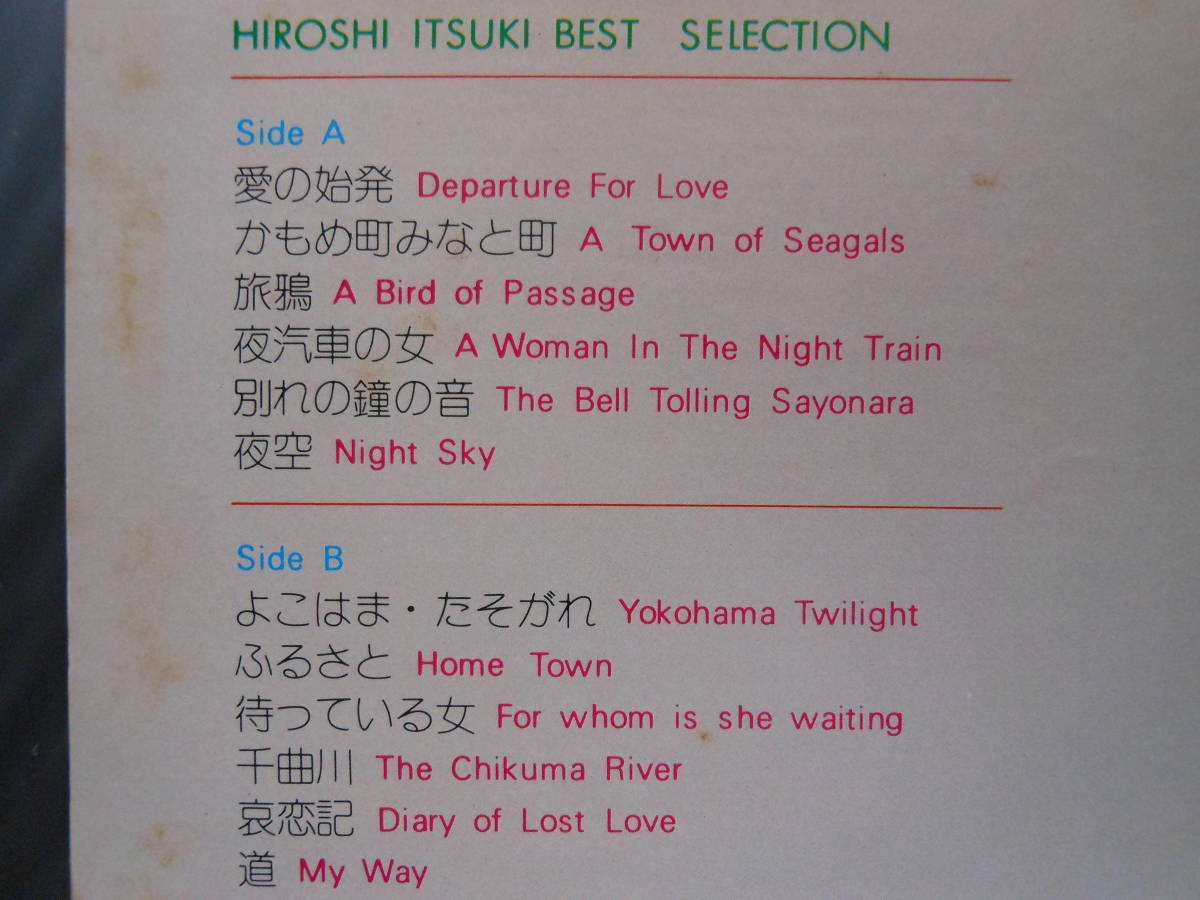 HIROSHI ITSUKI BEST SELECTION
Side A
愛の始発 Departure For Love
かもめ町みなと町 A Town of Seagals
旅鴉 A Bird of Passage
夜汽車の女 A Woman In The Night Train
別れの鐘の音 The Bell Tolling Sayonara
夜空 Night Sky
Side B
よこはま・たそがれ Yokohama Twilight
ふるさと Home Town
待っている女 For whom is she waiting
千曲川 The Chikuma River
哀恋記 Diary of Lost Love
道 My Way